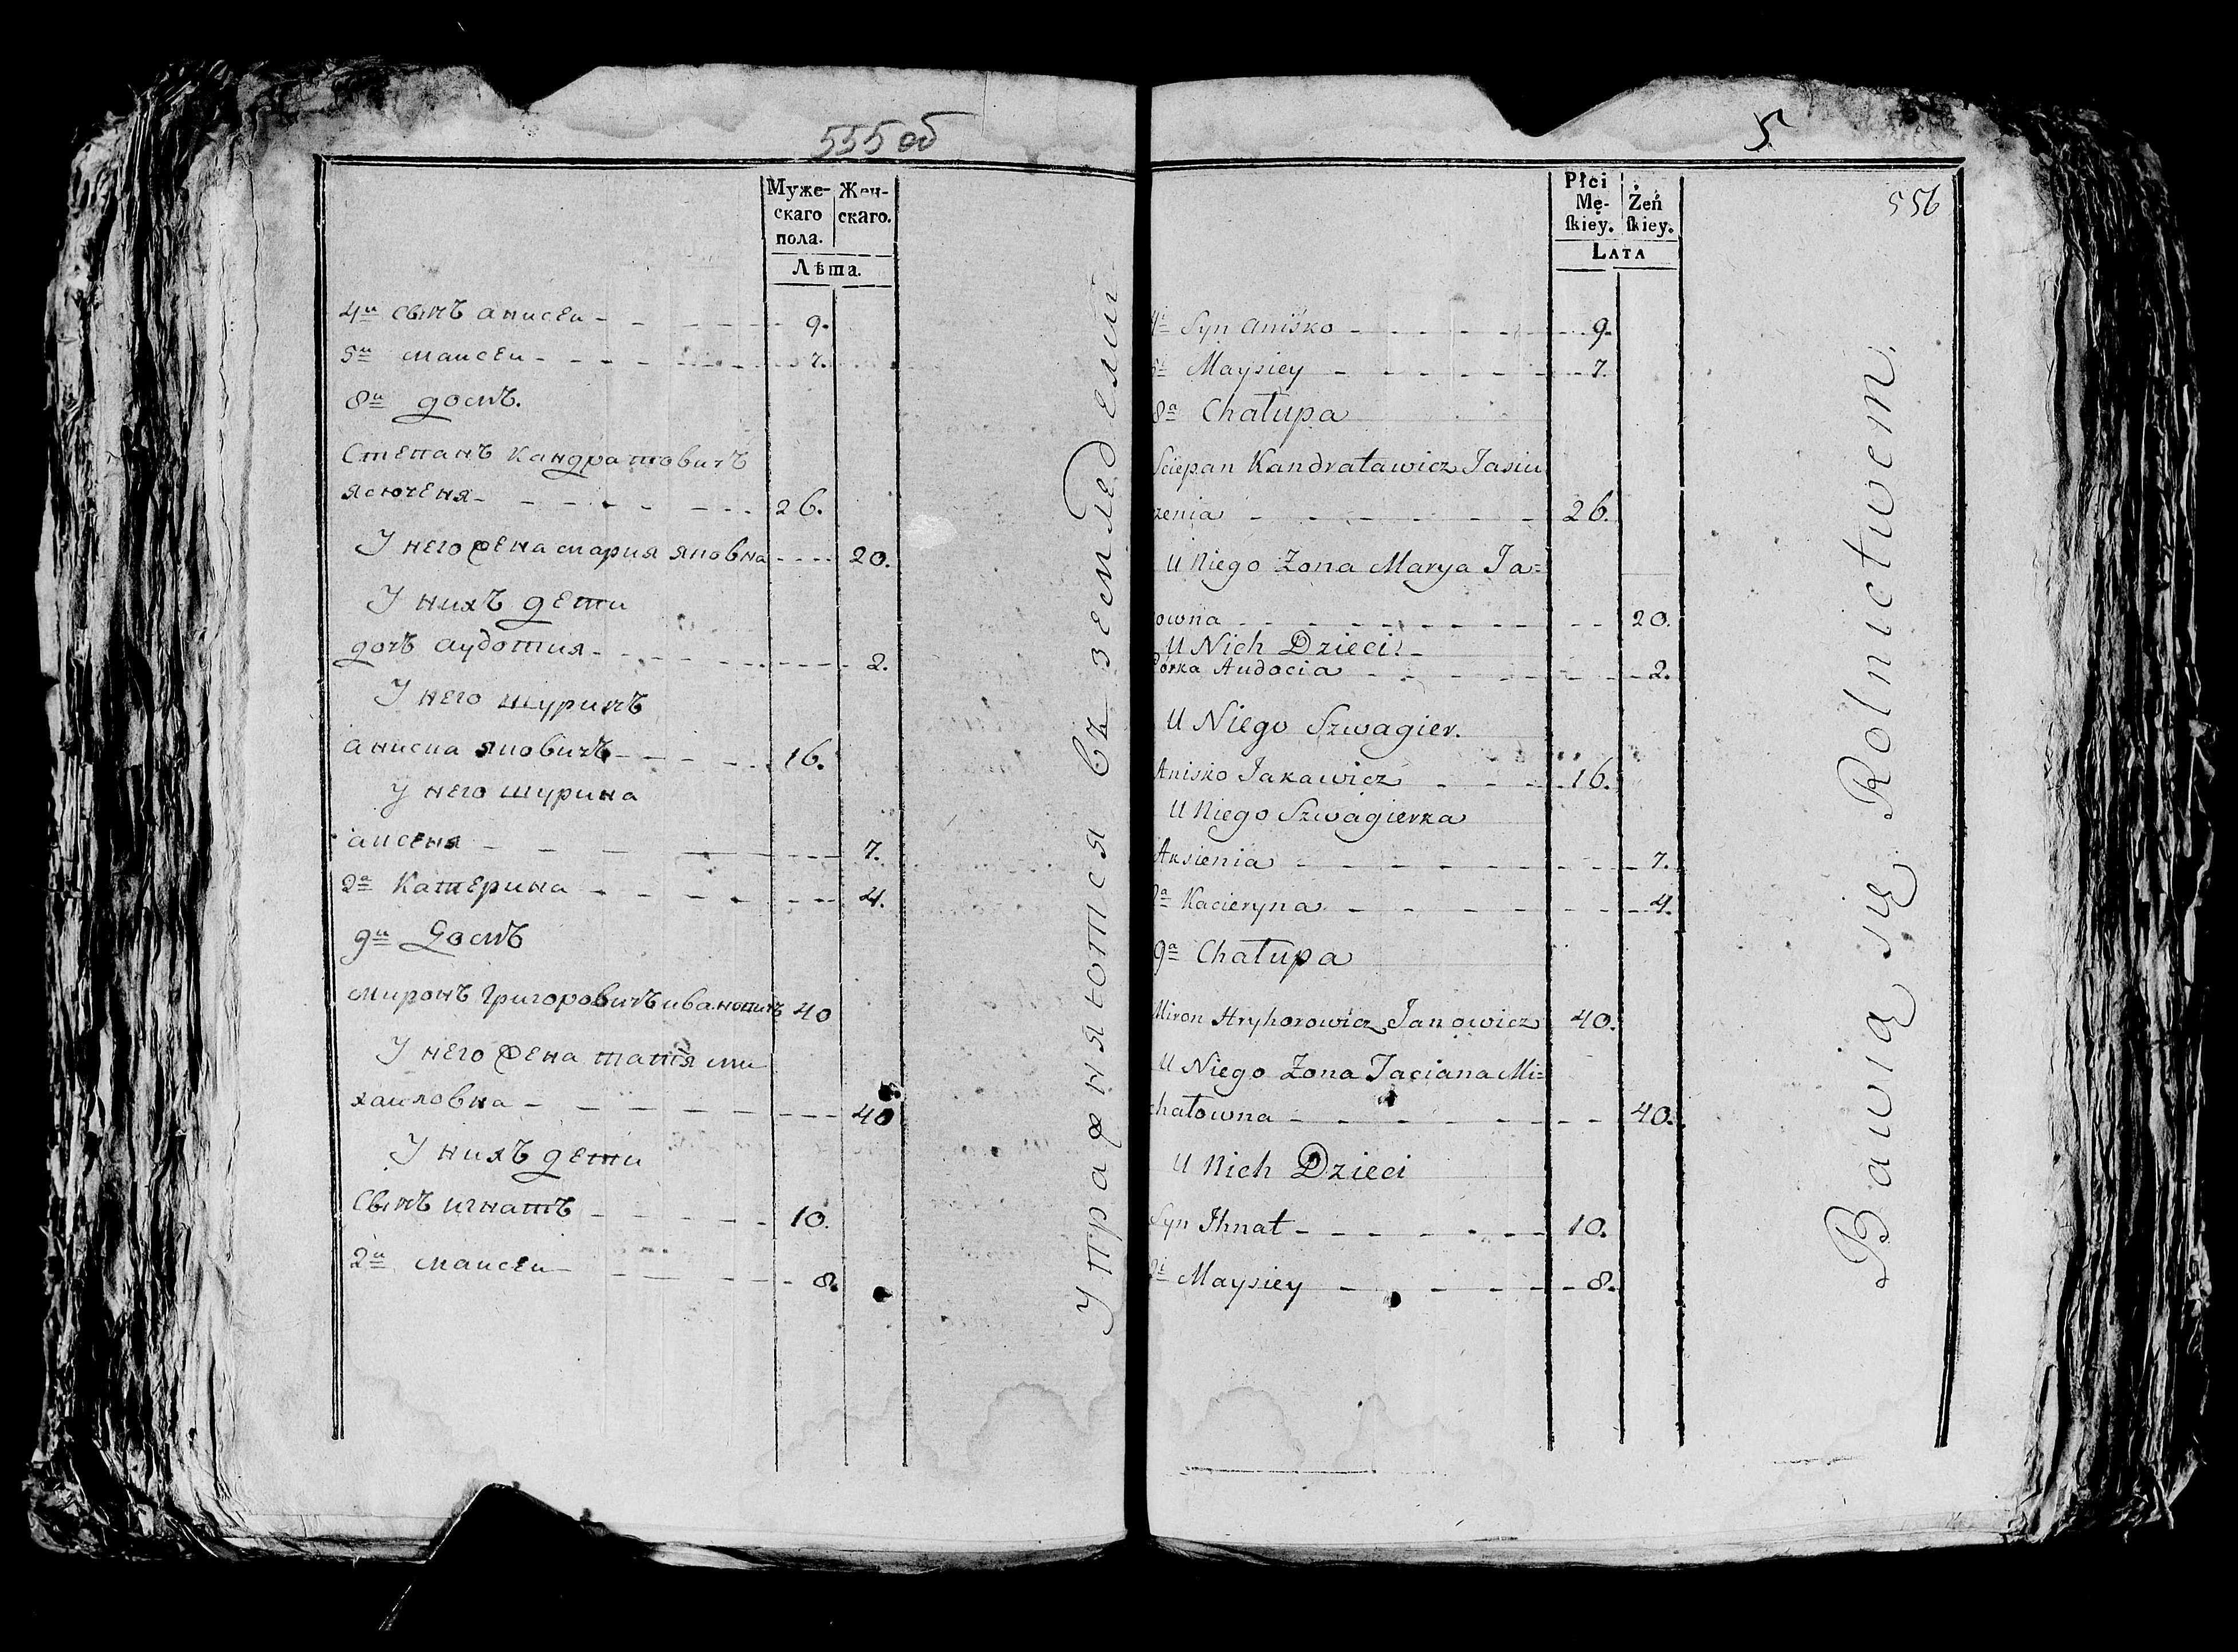 555 об
Муже- Жен-
скаго скаго.
пола.
Лѣта.
4й сынъ анисей 9.
5й маисей 7.
8й домъ.
Степанъ Кандратовичъ
ясюченя 26.
У него жена мария яковна 20.
У нихъ дети
дочъ аудотия 2.
У него шуринъ
аниска яковичъ 16.
у него шурина
аксеня 7.
2а Катерина 4.
9й Домъ
миронъ Григоровичъ 40
У него жена татяна ми
хаиловна 40
У нихъ дети
Сынъ игнатъ 10.
2й маисей 8.
Упражняютсѧ въ земледелии
5
556
Płci Żeń
Mę- skiey.
skiey.
LATA
4i Syn Aniśko 9.
5i Maysiey 7.
8a Chałupa
Sciepan Kandratawicz Jasiu
czenia 26.
U Niego Żona Marya Ja=
owna 20.
U Nich Dzieci.
Córka Audocia 2.
U Niego Szwagier.
Anisko Jakawicz 16.
U Niego Szwagierka
Aksienia 7.
2a Kacieryna 4.
9a Chałupa
Miron Hryhorowicz Janowicz 40.
U Niego Żona Taciana Mi=
chałowna 40.
U Nich Dzieci
Syn Ihnat 10.
2i Maysiey 8.
Bawią się Rolnictwem.